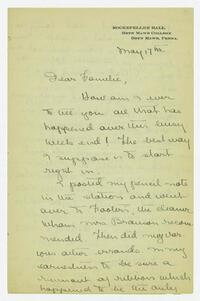 ROCKEFELLER HALL
BRYN MAWR COLLEGE
BRYN MAWR, PENNA.
May 17th
Dear Familie,
How am I ever
to tell you all that has
happened over this busy
week end! The best way
I suppose is to start
right in.
I posted my pencil note
in the station and went
over to Footers the cleaner
whom Mrs. Branson recom
mended. Then did my var
ious other errands in my
earnestness to be sure a
of ribbon which
happened to be the only